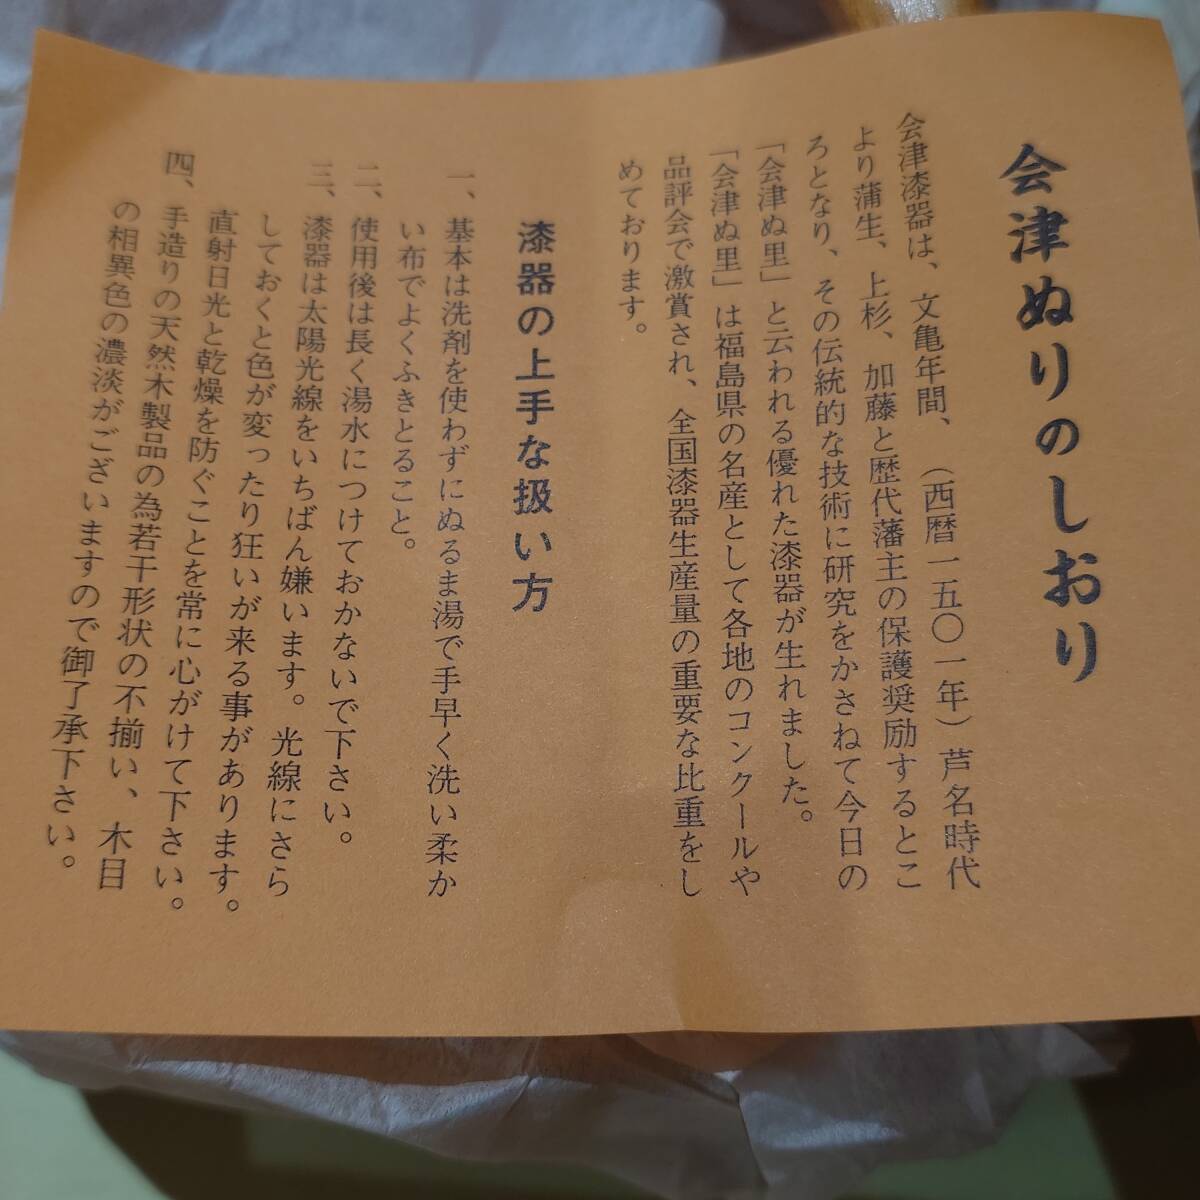 会津ぬりのしおり
会津漆器は、文亀年間、(西暦一五〇一年)芦名時代
より蒲生、上杉、加藤と歴代藩主の保護奨励するとこ
ろとなり、その伝統的な技術に研究をかさねて今日の
「会津ぬ里」と云われる優れた漆器が生れました。
「会津ぬ里」は福島県の名産として各地のコンクールや
品評会で激賞され、全国漆器生産量の重要な比重をし
めております。
漆器の上手な扱い方
一、基本は洗剤を使わずにぬるま湯で手早く洗い柔か
い布でよくふきとること。
二、使用後は長く湯水につけておかないで下さい。
三、漆器は太陽光線をいちばん嫌います。光線にさら
しておくと色が変ったり狂いが来る事があります。
直射日光と乾燥を防ぐことを常に心がけて下さい。
四、手造りの天然木製品の為若干形状の不揃い、木目
の相異色の濃淡がございますので御了承下さい。